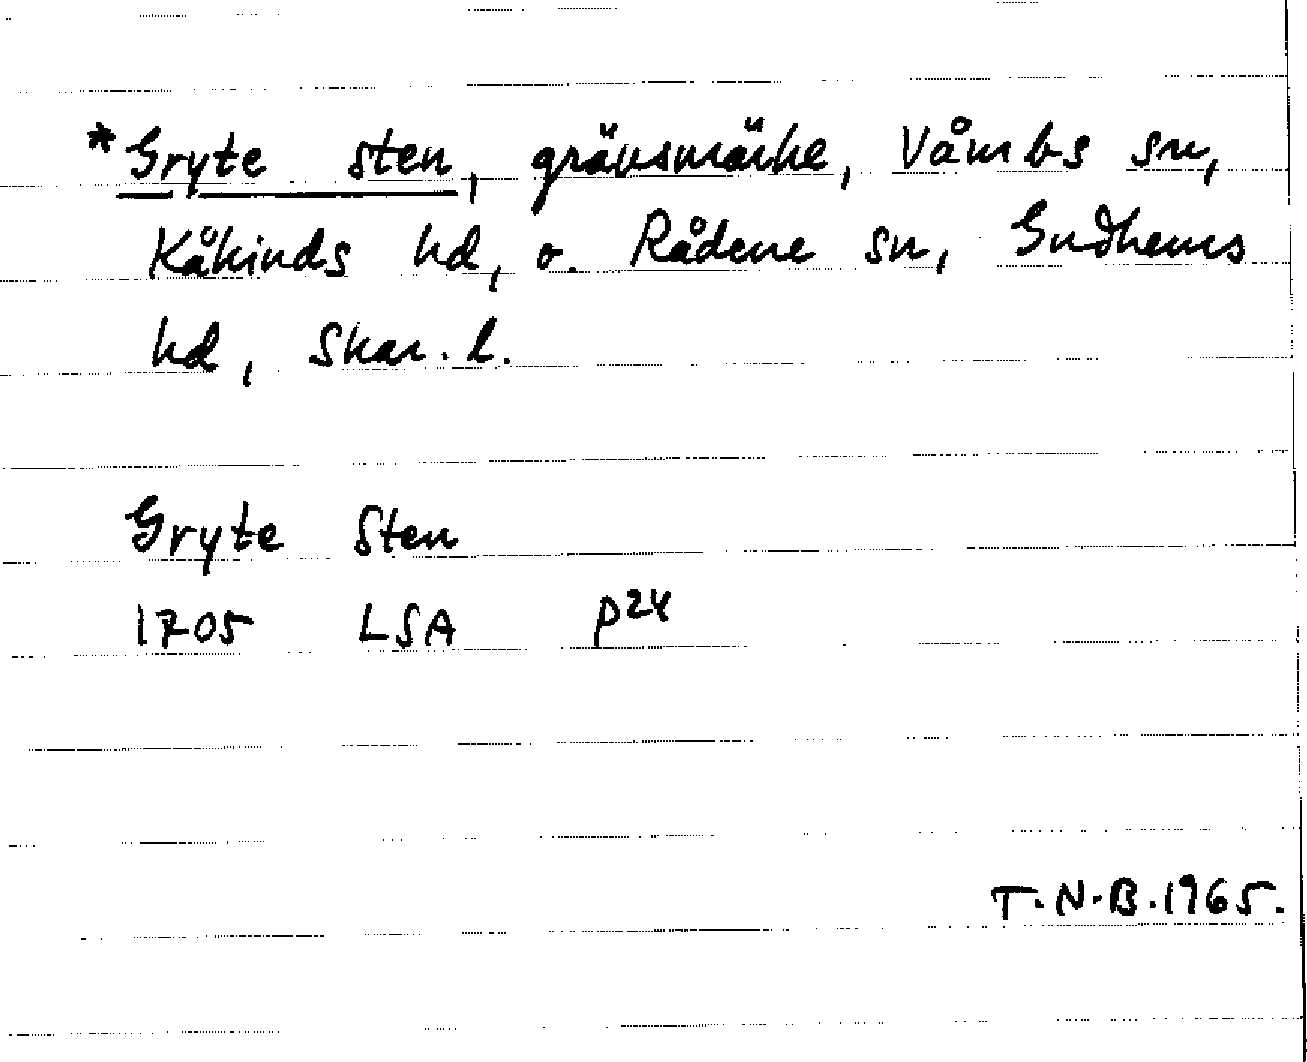 *Gryte sten, gränsmärke, Våmbs sn,
Kåkinds hd, o. Rådene sn, Gudhems
hd, Skar. l.
Gryte Sten
1705 LSA P24
T.N.B.1965.